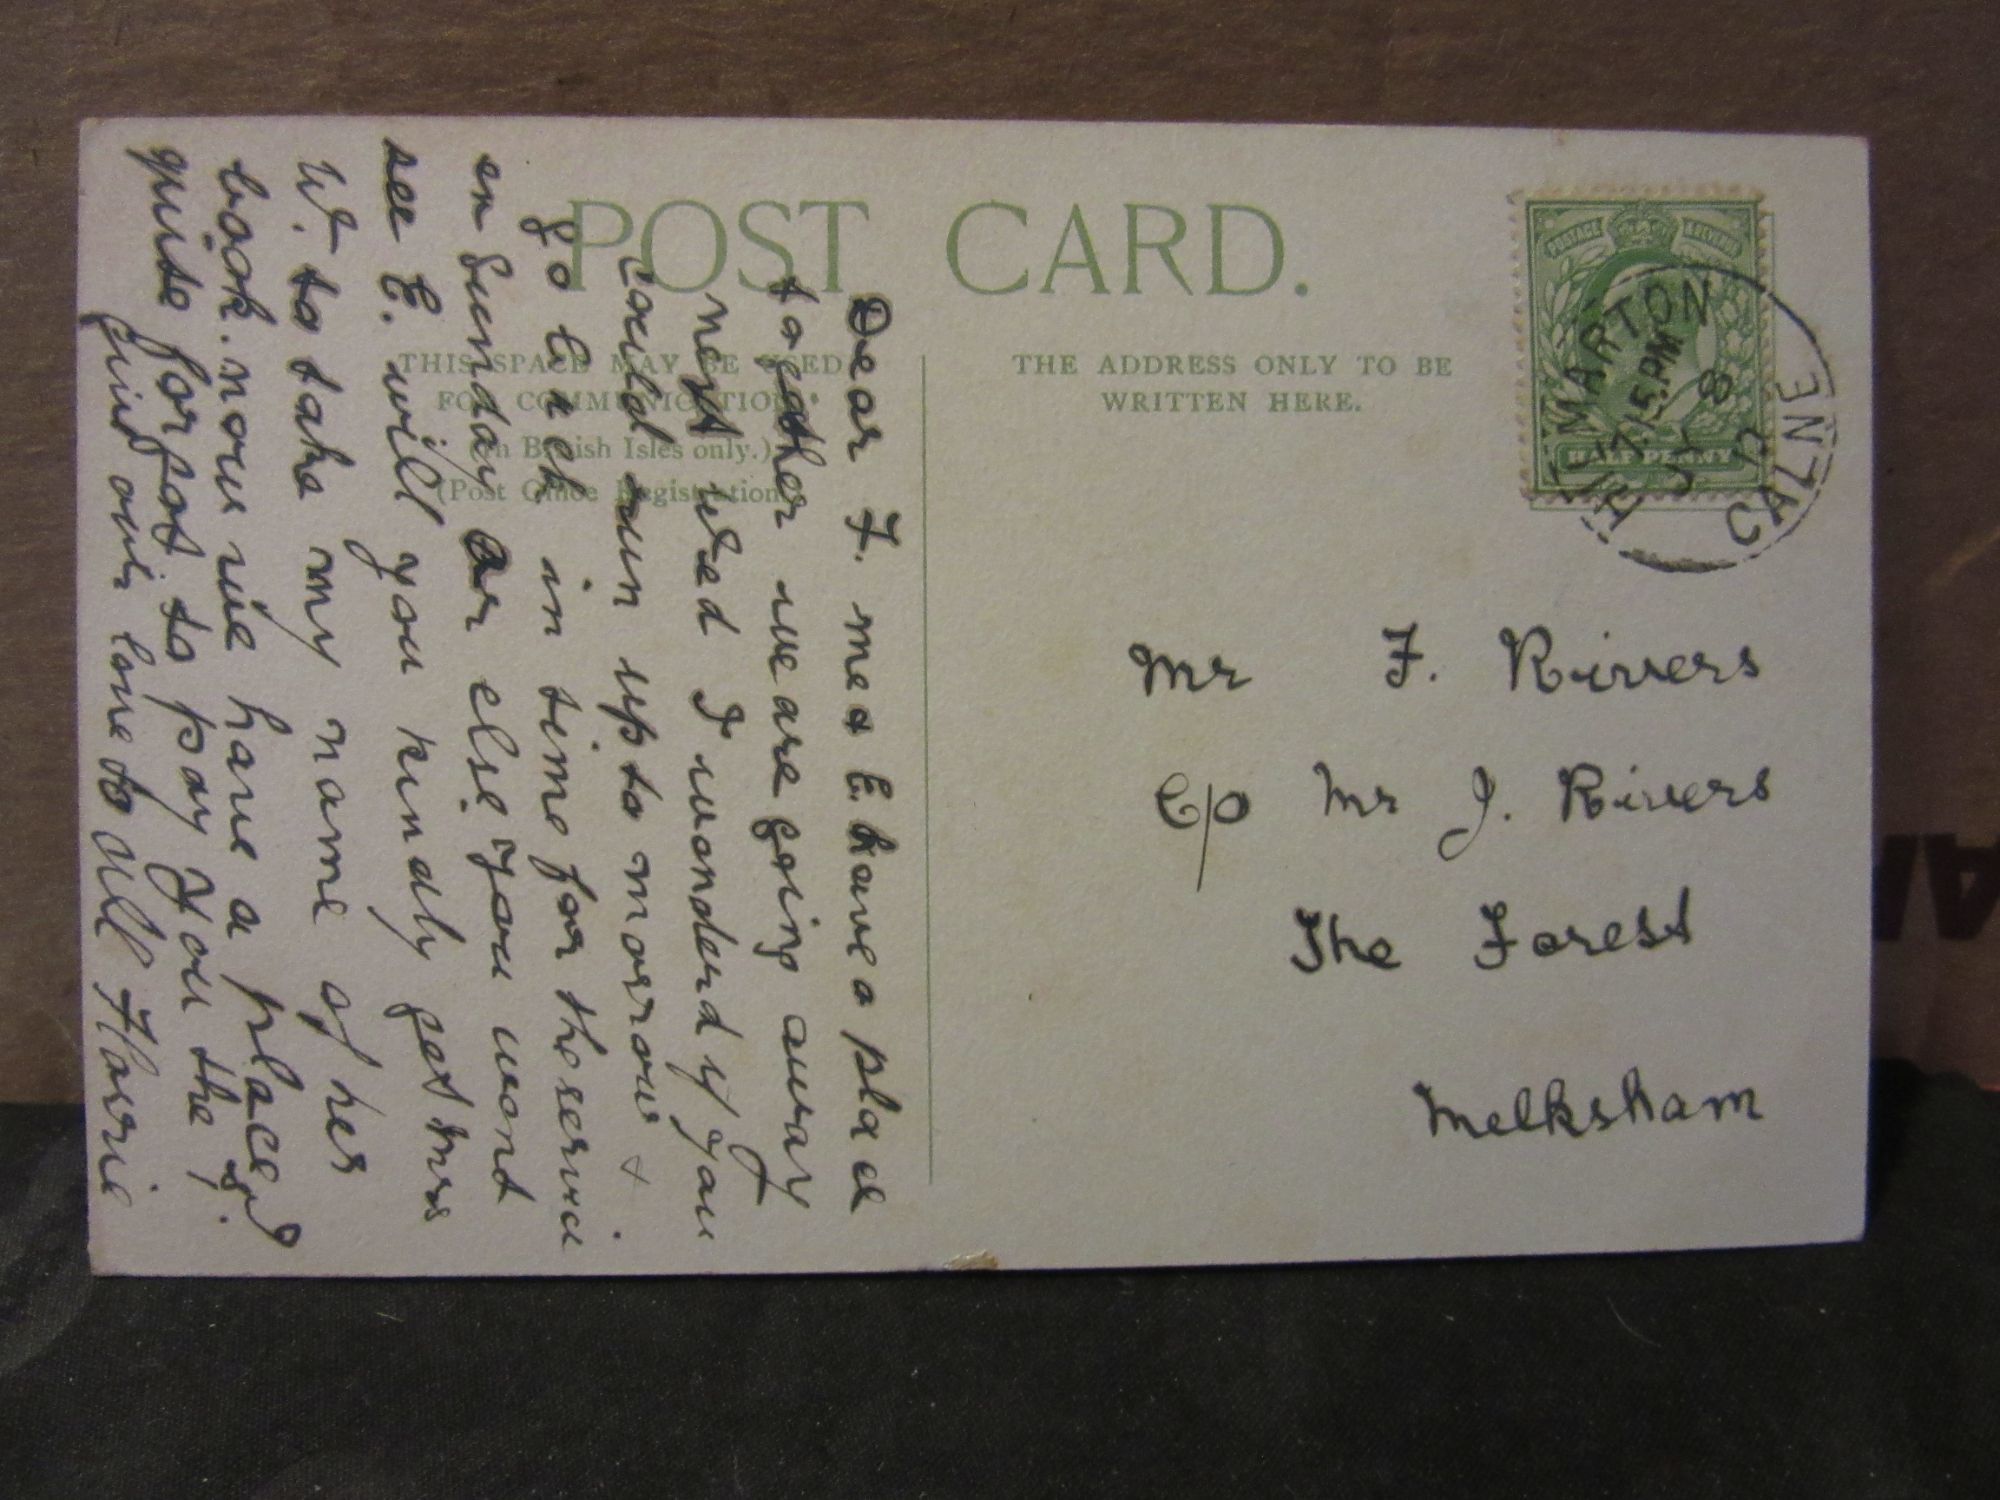 POST CARD.
THIS SPACE MAY BE USED
FOR COMMUNICATION
(In British Isles only.)
(Post Office Registration.)
THE ADDRESS ONLY TO BE
WRITTEN HERE.
POSTAGE & REVENUE
HALF PENNY
HILMARTON
7.15 PM
JY 8
CALNE
Dear F. me & E. have a place
together we are going away
next Wed I wonderd if you
could run up to morrow +
go back in time for the service
on Sunday or else you wont
see E. will you kindly get Mrs
W. to take my name of her
book. now we have a place, I
quite forgot to pay you the 1/.
give our love to all Florrie
Mr F. Rivers
c/o Mr J. Rivers
The Forest
Melksham